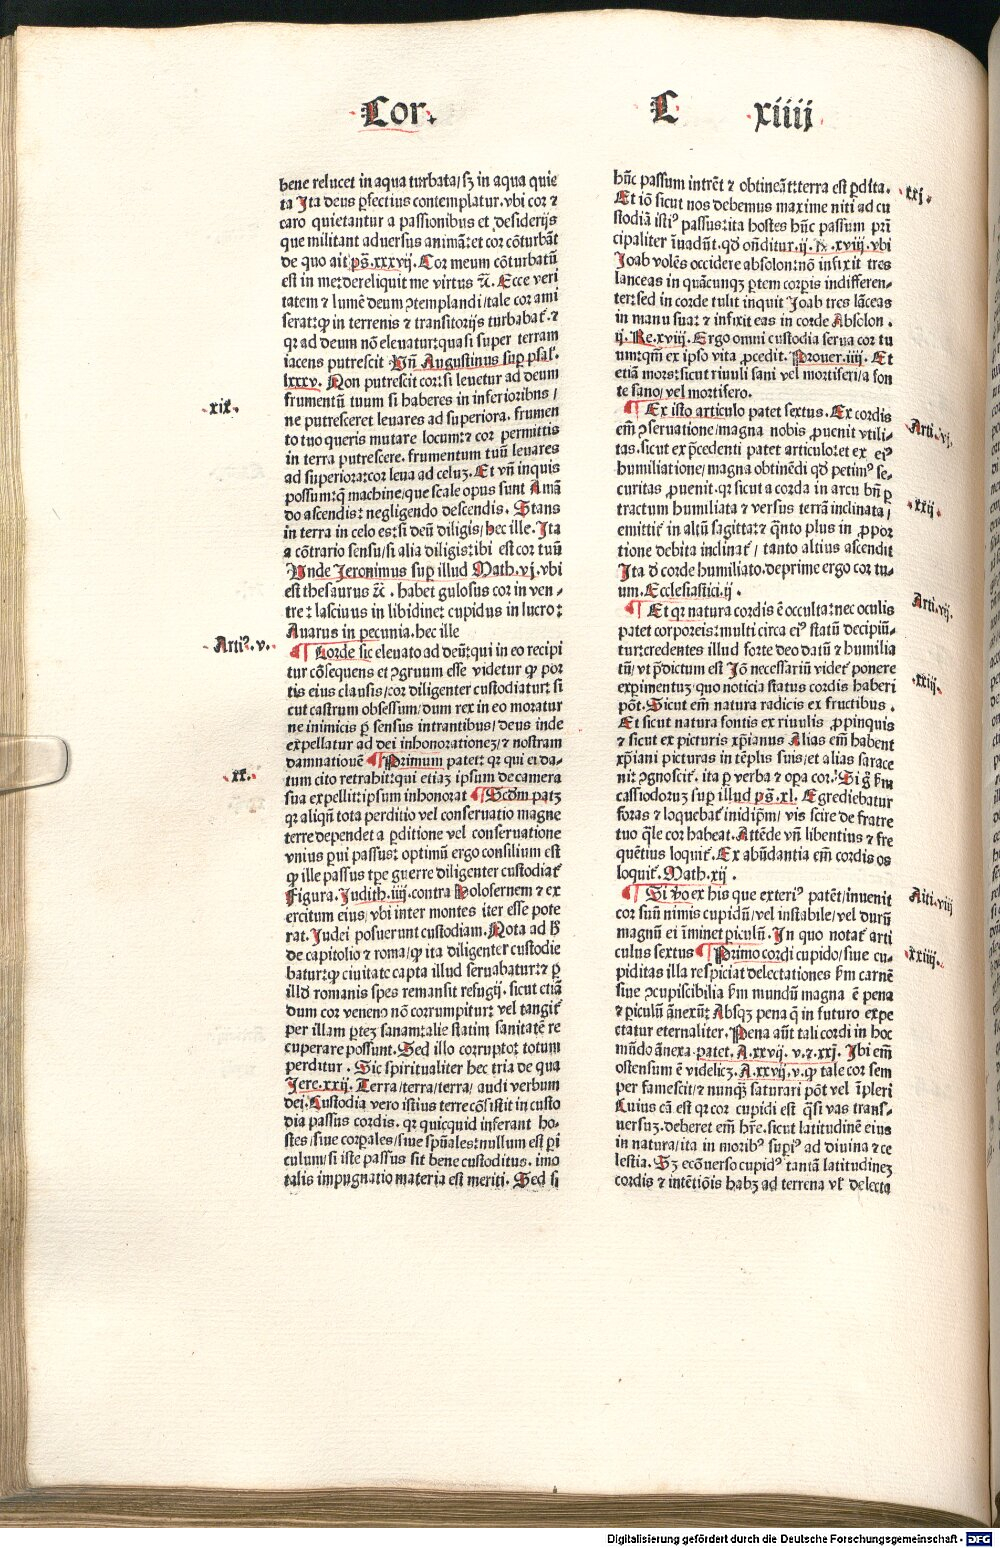 Cor.
C xiiij
bene relucet in aqua turbata/sꝫ in aqua quie
ta Ita deus ꝑfectius contemplatur. vbi cor ⁊
caro quietantur a passionibus et desiderijs
que militant aduersus animā: et cor cōturbāt
de quo ait ps̄. xxxvij. Cor meum cōturbatū
est in me: dereliquit me virtus ⁊c̄. Ecce veri
tatem ⁊ lumē deum ꝯtemplandi/tale cor ami
serat: ꝙ in terrenis ⁊ transitorijs turbabat̉. ⁊
qꝛ ad deum nō eleuatur: quasi super terram
iacens putrescit Vn̄ Augustinus suꝑ psal̓.
lxxxv. Non putrescit cor: si leuetur ad deum
frumentū tuum si haberes in inferioribus/
ne putresceret leuares ad superiora. frumen
to tuo queris mutare locum: ⁊ cor permittis
in terra putrescere. frumentum tuū leuares
ad superiora: cor leua ad celuꝫ. Et vn̄ inquis
possum: q̄ machine/que scale opus sunt Amā
do ascendis: negligendo descendis. Stans
in terra in celo es: si deū diligis/hec ille. Ita
a cōtrario sensu/si alia diligis: ibi est cor tuū
Vnde Jeronimus suꝑ illud Math. vj. vbi
est thesaurus ⁊c̄. habet gulosus cor in ven⸗
tre: lasciuus in libidine: cupidus in lucro:
Auarus in pecunia. hec ille
¶ Corde sic eleuato ad deū: qui in eo recipi
tur cōsequens et ꝯgruum esse videtur ꝙ por
tis eius clausis/cor diligenter custodiatur: si
cut castrum obsessum/dum rex in eo moratur
ne inimicis ꝑ sensus intrantibus/deus inde
expellatur ad dei inhonorationeꝫ/⁊ nostram
damnationē ¶ Primum patet: qꝛ qui ei da⸗
tum cito retrahit: qui etiaꝫ ipsum de camera
sua expellit: ipsum inhonorat ¶ Scd̄m patꝫ
qꝛ aliqn̄ tota perditio vel conseruatio magne
terre dependet a ꝑditione vel conseruatione
vnius ꝑui passus: optimū ergo consilium est
ꝙ ille passus tꝑe guerre diligenter custodiat̉
Figura. Judith. iiij. contra Holofernem ⁊ ex
ercitum eius/vbi inter montes iter esse pote
rat. Judei posuerunt custodiam. Nota ad h̄
de capitolio ⁊ roma/ꝙ ita diligenter custodie
batur: ꝙ ciuitate capta illud seruabatur: ⁊ ꝑ
illd̄ romanis spes remansit refugij. sicut etiā
dum cor veneno nō corrumpitur: vel tangit̉
per illam ꝑteꝫ sanam: alie statim sanitatē re
cuperare possunt. Sed illo corrupto: totum
perditur. Sic spiritualiter hec tria de qua
Jere. xxij. Terra/terra/terra/ audi verbum
dei. Custodia vero istius terre cōsistit in custo
dia passus cordis. qꝛ quicquid inferant ho⸗
stes/siue corꝑales/siue spn̄ales: nullum est ꝑi
culum/si iste passus sit bene custoditus. imo
talis impugnatio materia est meriti. Sed si
xix.
Arti⁹. v.
xx.
hūc passum intrēt ⁊ obtineāt: terra est ꝑdita.
Et iō sicut nos debemus maxime niti ad cu
stodiā isti⁹ passus: ita hostes hūc passum prī
cipaliter īuadūt. qd̄ on̄ditur. ij. Re. xviij. vbi
Joab volēs occidere absolon: nō infixit tres
lanceas in quācunqꝫ ꝑtem corꝑis indifferen⸗
ter: sed in corde tulit inquit Joab tres lāceas
in manu sua: ⁊ infixit eas in corde Absolon.
ij. Re. xviij. Ergo omni custodia serua cor tu
um: qm̄ ex ipso vita ꝓcedit. Prouer. iiij. Et
etiā mors: sicut riuuli sani vel mortiferi/a fon
te sano/vel mortifero.
¶ Ex isto articulo patet sextus. Ex cordis
em̄ ꝯseruatione/magna nobis ꝓuenit vtili⸗
tas. sicut ex p̄cedenti patet articulo: et ex ei⁹
humiliatione/magna obtinēdi qd̄ petim⁹ se⸗
curitas ꝓuenit. qꝛ sicut a corda in arcu bn̄ ꝑ
tractum humiliata ⁊ versus terrā inclinata/
emittit̉ in altū sagitta: ⁊ q̄nto plus in ꝓpor
tione debita inclinat̉/ tanto altius ascendit
Ita d̄ corde humiliato. deprime ergo cor tu⸗
um. Ecclesiastici. ij.
¶ Et qꝛ natura cordis ē occulta: nec oculis
patet corporeis: multi circa ei⁹ statū decipiū⸗
tur: credentes illud forte deo datū ⁊ humilia
tū/ vt p̄dictum est Iō necessariū videt̉ ponere
experimentuꝫ/quo noticia status cordis haberi
pōt. Sicut em̄ natura radicis ex fructibus.
Et sicut natura fontis ex riuulis ꝓpinquis
⁊ sicut ex picturis xp̄ianus Alias em̄ habent
xp̄iani picturas in tēplis suis/et alias sarace
ni: ꝯgnoscit̉. ita ꝑ verba ⁊ oꝑa cor. Sic̄ g̊ ẜm
cassiodoruꝫ suꝑ illud ps̄. xl. Egrediebatur
foras ⁊ loquebat̉ inidip̄m/ vis scire de fratre
tuo q̄le cor habeat. Attēde vn̄ libentius ⁊ fre
quētius loquit̉. Ex abūdantia em̄ cordis os
loquit̉. Math. xij.
¶ Si v̊o ex his que exteri⁹ patēt/inuenit
cor suū nimis cupidū/vel instabile/vel durū
magnū ei īminet ꝑiculū. In quo notat̉ arti
culus sextus ¶ Primo cordi cupido/siue cu⸗
piditas illa respiciat delectationes ẜm carnē
siue ꝯcupiscibilia ẜm mundū magna ē pena
⁊ ꝑiculū ānexū: Absqꝫ pena q̄ in futuro expe
ctatur eternaliter. Pena aūt tali cordi in hoc
mūdo ānexa patet. A. xxvij. v. ⁊. xxj. Ibi em̄
ostensum ē videlicꝫ. A. xxvij. v. ꝙ tale cor sem
per famescit/⁊ nunqꝫ̄ saturari pōt vel īpleri
Cuius cā est qꝛ cor cupidi est q̄si vas trans⸗
uersuꝫ. deberet em̄ hr̄e. sicut latitudinē eius
in natura/ita in morib⁹ suꝑi⁹ ad diuina ⁊ ce
lestia. Sꝫ ecōuerso cupid⁹ tantā latitudineꝫ
cordis ⁊ intētiōis habꝫ ad terrena vl̓ delecta
xxj.
Arti. vj.
xxij.
Arti. vij.
xxiij.
Arti. viij
xxiiij.
Digitalisierung gefördert durch die Deutsche Forschungsgemeinschaft - DFG